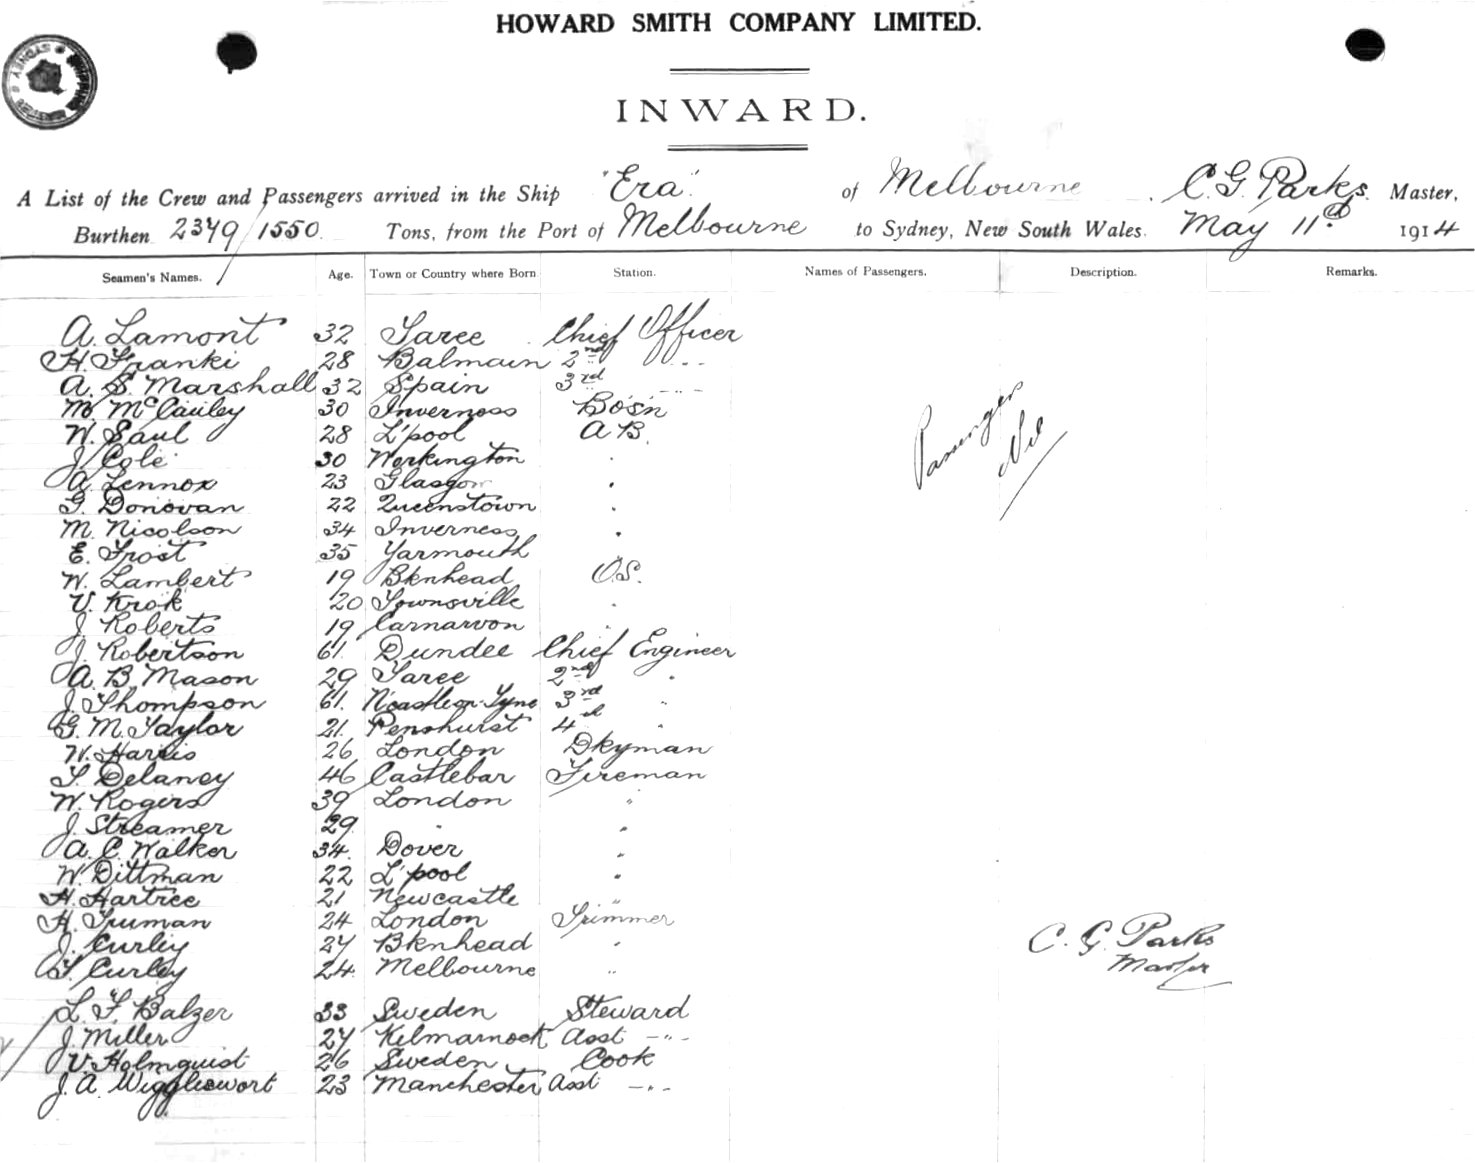 HOWARD SMITH COMPANY LIMITED.
INWARD.
A List of the Crew and Passengers arrived in the Ship "Era" of Melbourne C. G. Parks Master,
Burthen 2379/1550 Tons, from the Port of Melbourne to Sydney, New South Wales. May 11th 1914
Seamen's Names. Age. Town or Country where Born Station. Names of Passengers. Description. Remarks.
A. Lamont 32 Taree Chief Officer
H. Franki 28 Balmain 2nd " "
A. S. Marshall 32 Spain 3rd " "
M. McCauley 30 Inverness Bos'n
W. Saul 28 L'pool A B.
J. Cole 30 Workington "
A. Lennox 23 Glasgow "
G. Donovan 22 Queenstown "
M. Nicolson 34 Inverness "
E. Frost 35 Yarmouth
W. Lambert 19 Bknhead O.S.
V. Krok 20 Townsville "
J. Roberts 19 Carnarvon "
J. Robertson 61 Dundee Chief Engineer
A. B. Mason 29 Taree 2nd "
J. Thompson 61. N'castle on Tyne 3rd "
G. M. Taylor 21. Penshurst 4th "
W. Harris 26 London Dkyman
T. Delaney 46 Castlebar Fireman
W. Rogers 39 London "
J. Streamer 29 " "
A. C. Walker 34. Dover "
W. Dittman 22 L'pool "
H. Hartree 21 Newcastle "
H. Truman 24 London Trimmer
J. Curley 27 Bknhead "
T. Curley 24. Melbourne "
L. F. Balzer 33 Sweden Steward
J. Miller 27 Kilmarnock Asst - " -
V. Holmquist 26 Sweden Cook
J. A. Wiggleswort 23 Manchester Asst - " -
Passenger
Nil
C. G. Parks
Master